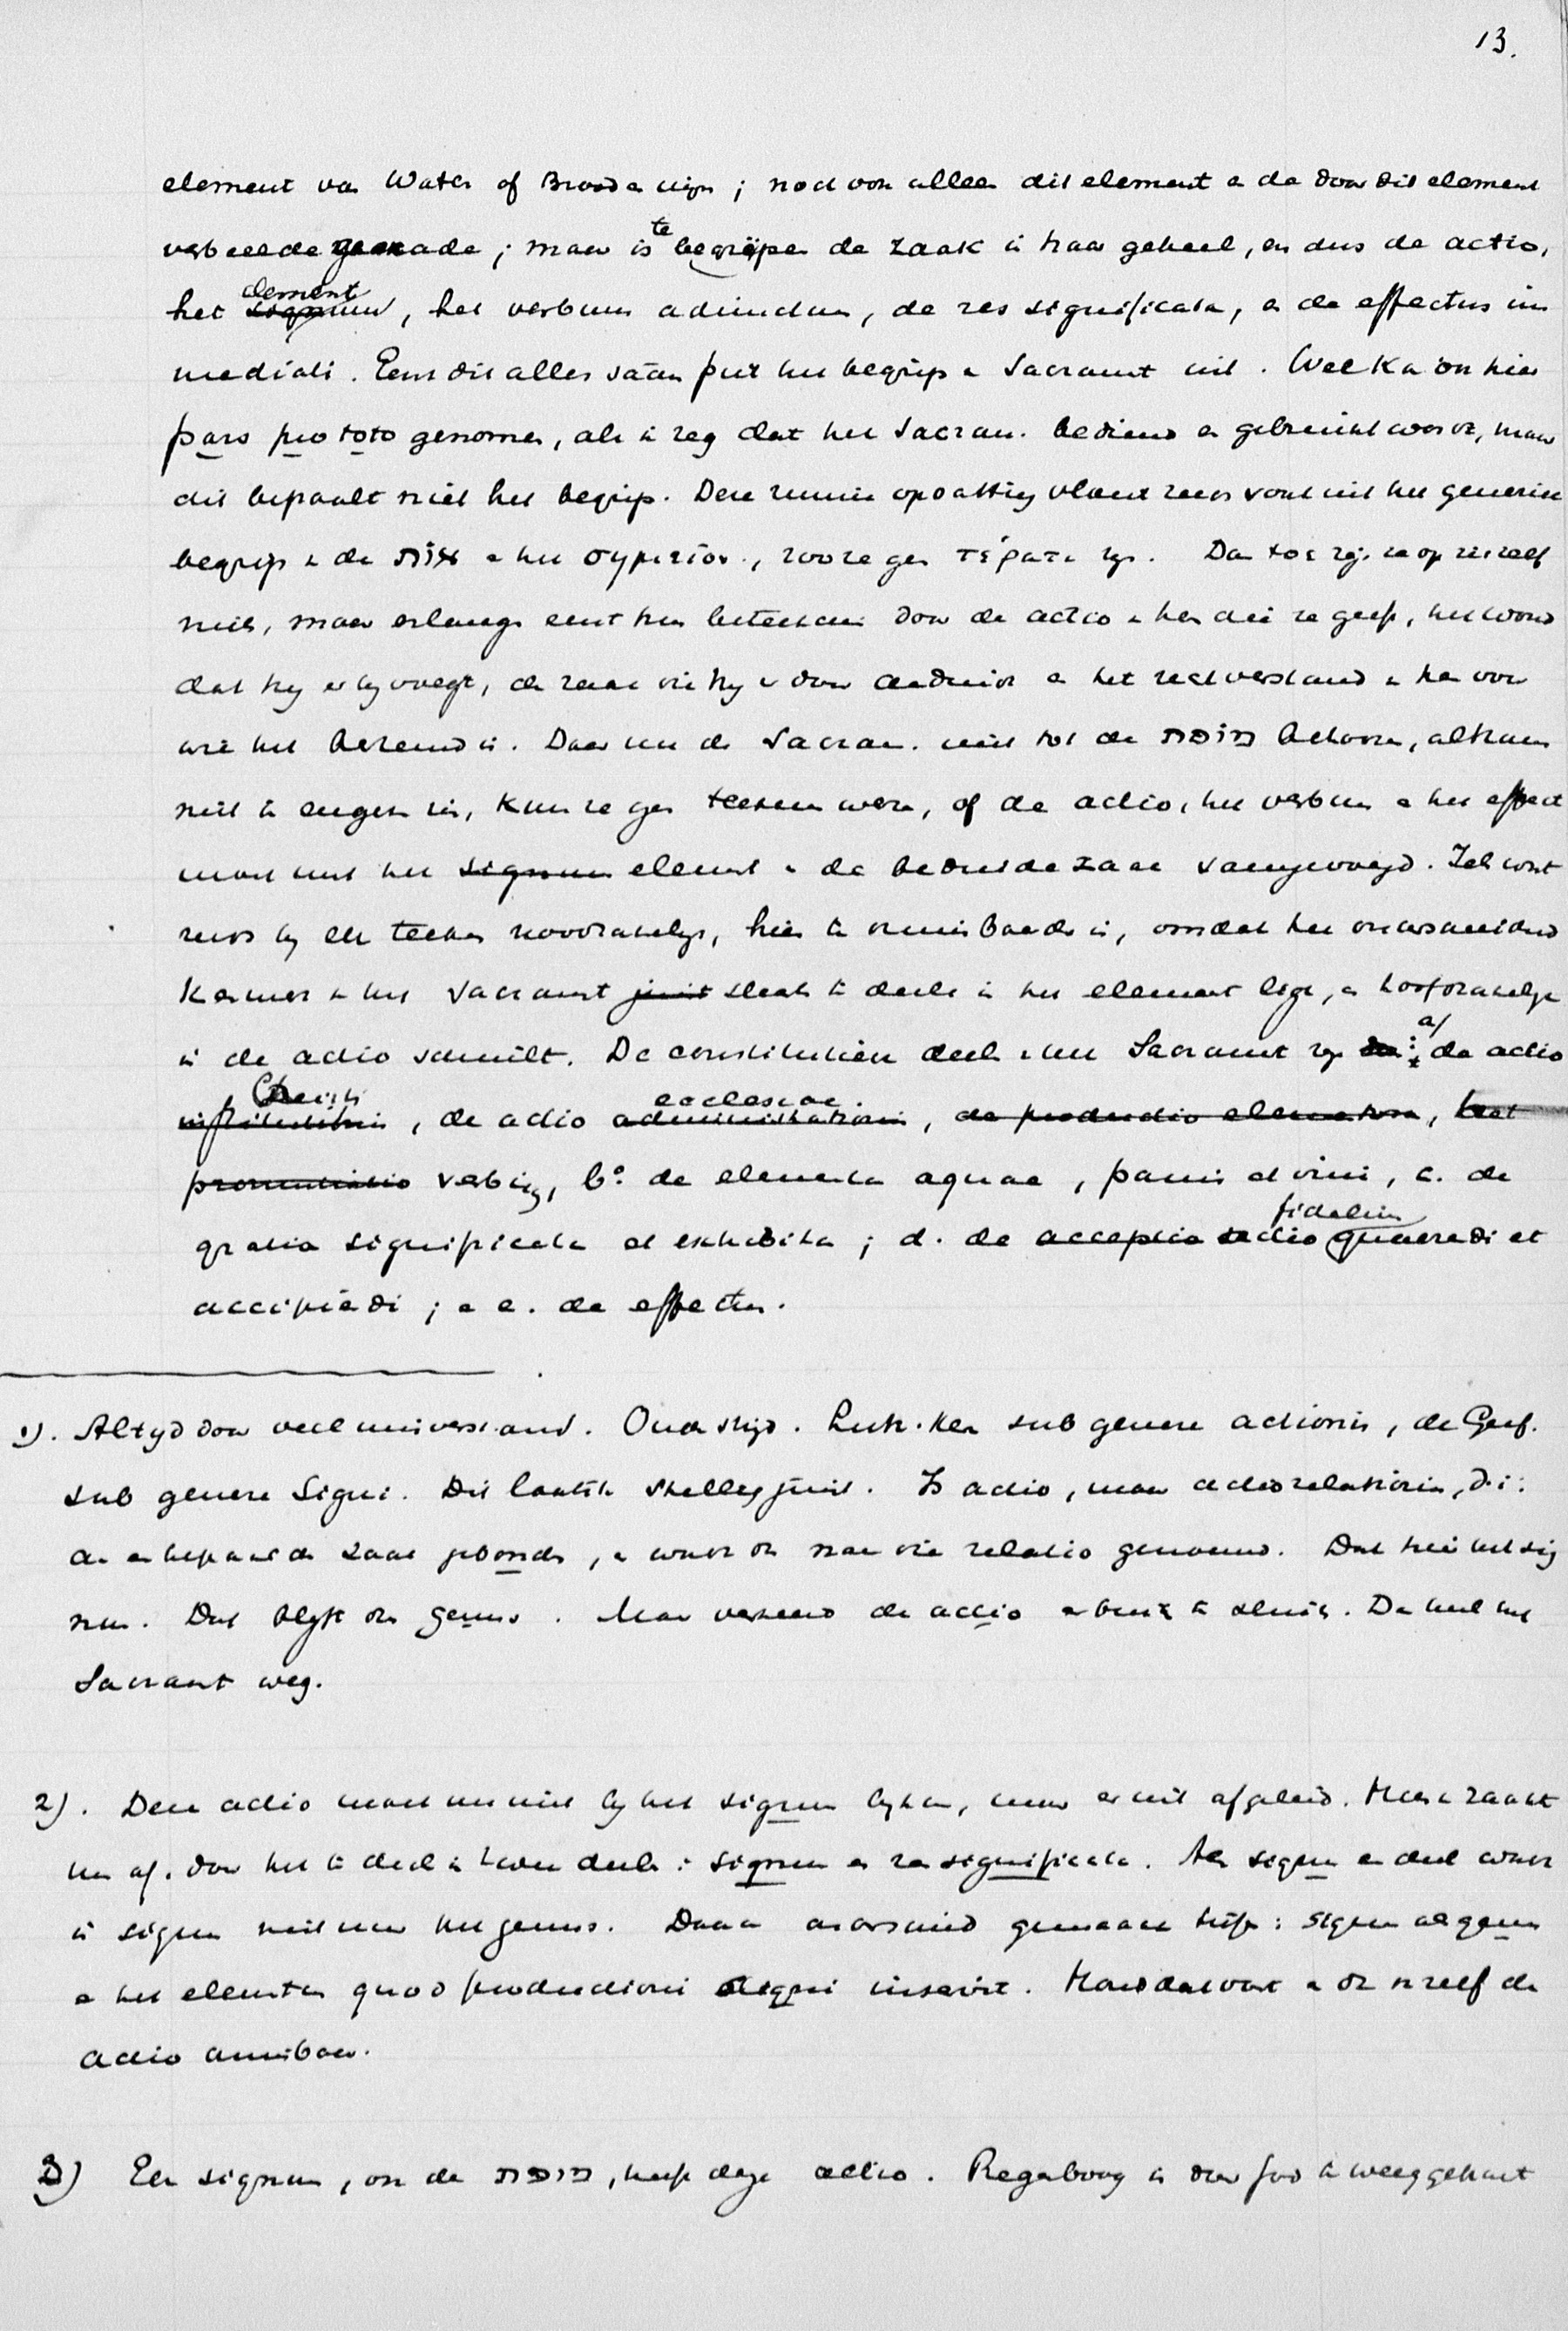 13.
element van Water of Brood en wijn; noch ook alleen dit element en de door dit element
verbeelde genade; maar is te begrijpen de zaak in haar geheel, en dus de actio,
het signum element, het verbum adiunctum, de res significata, en de effectus im
mediati. Eerst dit alles saâm put het begrip v Sacramt uit. Wel kan ook hier
pars pro toto genomen, als ik zeg dat het Sacram. bediend en gebruikt wordt, maar
dit bepaalt niet het begrip. Deze ruime opvatting vloeit reeds voort uit het generiek
begrip v de אות en het σημεῖον, zoo ze geen τέρατα zijn. Dan toch zijn ze op zichzelf
niets, maar erlangen eerst hun beteekenis door de actio v hen die ze geeft, het woord
dat hij er bij voegt, de zaak die hij er door aanduidt en het rechtverstand v hen voor
wie het bestemd is. Daar nu de Sacram. niet tot de מופת behooren, althans
niet in engeren zin, kunnen ze geen teeken wezen, of de actio, het verbum en het effect
moet met het signum element en de beduide zaak saamgevoegd. Iets wat
reeds bij elk teeken noodzakelijk, hier te onmisbaarder is, omdat het onderscheidend
Kenmerk v het Sacramt juist slechts ten deele in het element ligt, en hoofdzakelijk
in de actio schuilt. De constitutieve deelen v het Sacramt zijn de: a/ de actio
institutionis Christi, de actio administrationis ecclesiae, de productio elementorum, het
pronuntiatio verbi, b°. de elementa aquae, panis et vini, c. de
gratia significata et exhibita; d. de acceptio actio fidelium quaerendi et
accipiendi; en e. de effectus.
1). Altijd door veel misverstand. Oude strijd. Luth. Kerk sub genere actionis, de Geref.
sub genere Signi. Dit laatste stellig juist. Is actio, maar actio relationis, d.i:
aan een bepaalde zaak gebonden, en wordt ook naar die relatio genoemd. Dat hier het sig
num. Dat blijft ook genus. Maar verkeerd de actio er buiten te sluiten. Dan heel het
Sacramt weg.
2). Deze actio moet nu niet bij het signum bijkomen, maar er uit afgeleid. Men raakt
hem af. door het te deelen in twee deelen: signum en res significata. Als signum een deel wordt
is signum niet meer het genus. Daarom onderscheid gemaakt tusschen: signum als genus
en het elementum quod productioni signi inservit. Houdt dat vast en dan is zelf de
actio onmisbaar.
3) Elk signum, ook de מופת, heeft deze actio. Regenboog is door God te weeg gebracht